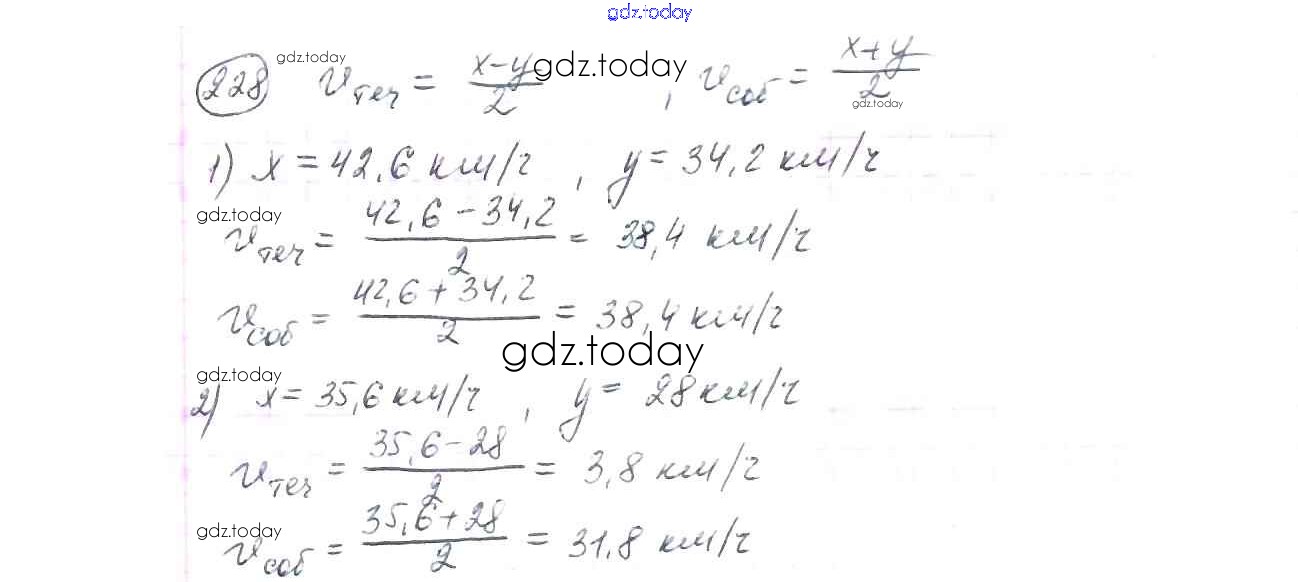 gdz.today
228 gdz.today vтеч = (x-y)/2 gdz.today , vсоб = (x+y)/2 gdz.today
1) x = 42,6 км/ч , y = 34,2 км/ч
gdz.today
vтеч = (42,6 - 34,2)/2 = 38,4 км/ч
vсоб = (42,6 + 34,2)/2 = 38,4 км/ч
gdz.today
gdz.today
2) x = 35,6 км/ч , y = 28 км/ч
vтеч = (35,6 - 28)/2 = 3,8 км/ч
gdz.today
vсоб = (35,6 + 28)/2 = 31,8 км/ч